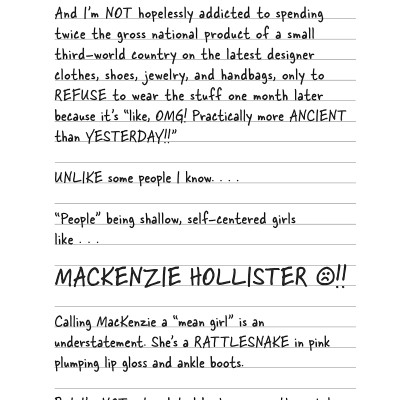 And I'm NOT hopelessly addicted to spending
twice the gross national product of a small
third-world country on the latest designer
clothes, shoes, jewelry, and handbags, only to
REFUSE to wear the stuff one month later
because it's "like, OMG! Practically more ANCIENT
than YESTERDAY!!"
UNLIKE some people I know. . . .
"People" being shallow, self-centered girls
like . . .
MACKENZIE HOLLISTER ☹!!
Calling MacKenzie a "mean girl" is an
understatement. She's a RATTLESNAKE in pink
plumping lip gloss and ankle boots.